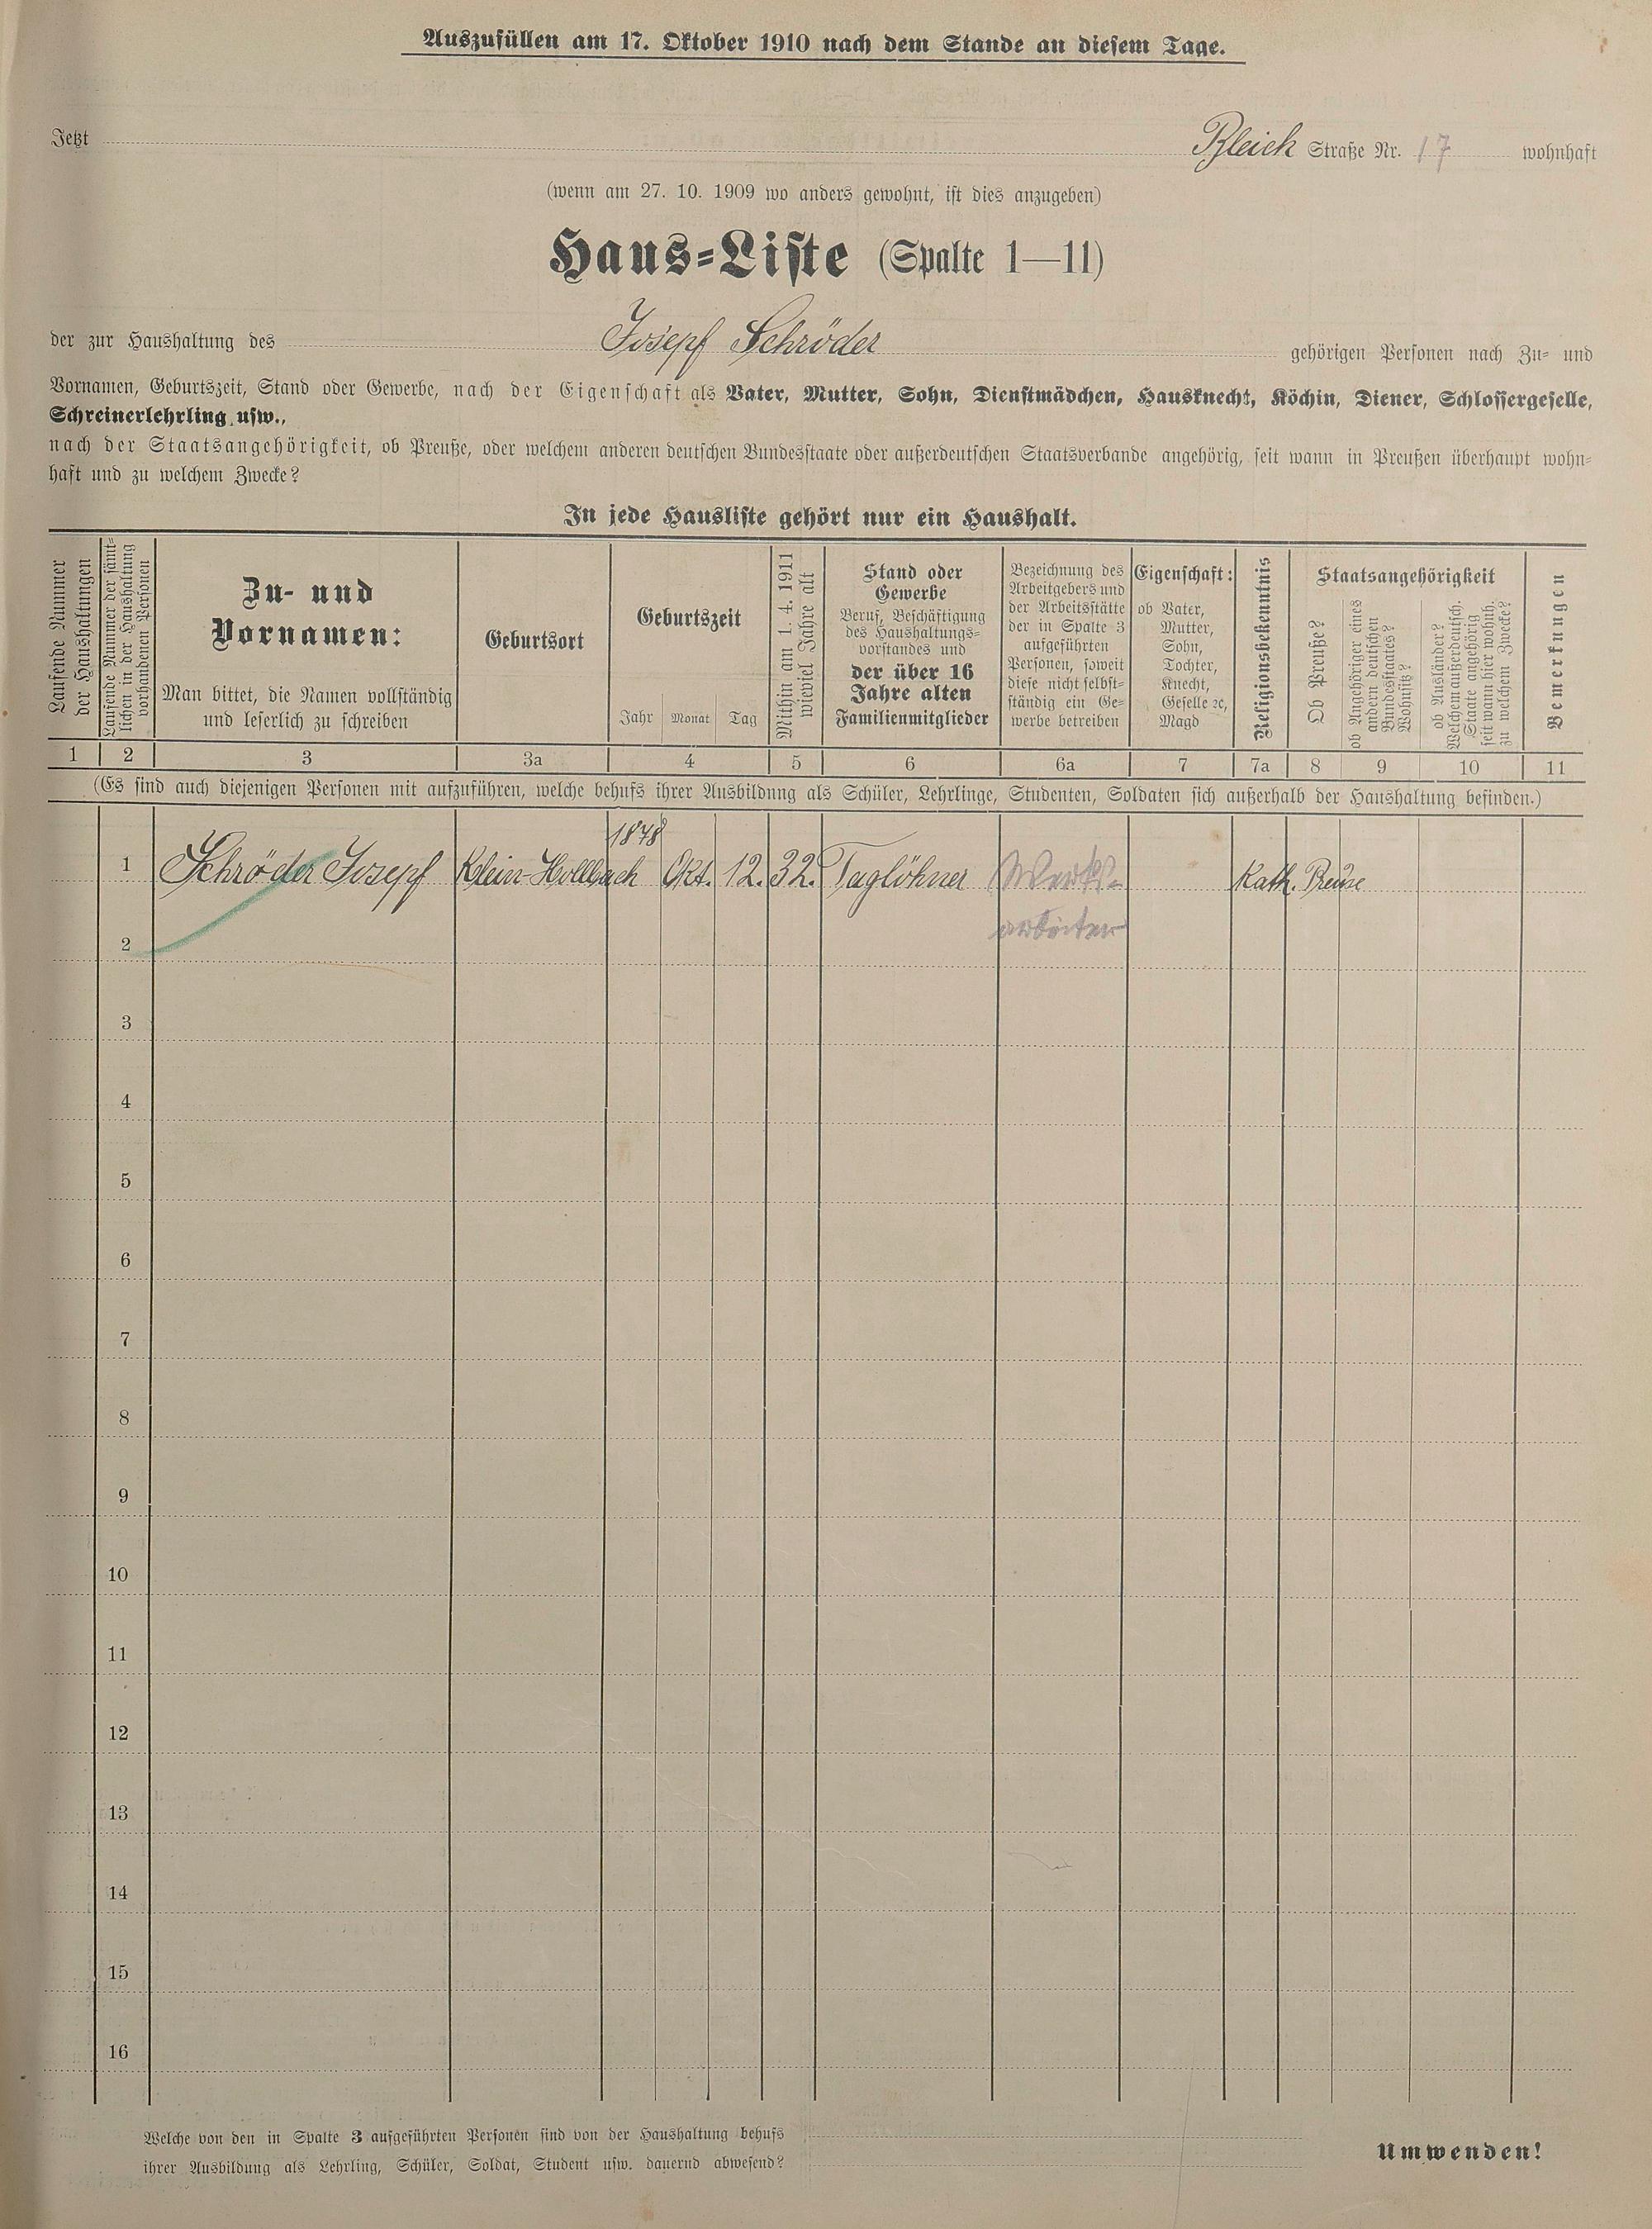 Auszufüllen am 17. Oktober 1910 nach dem Stande an diesem Tage.
Jetzt Bleich Straße Nr. 17 wohnhaft
(wenn am 27. 10. 1909 wo anders gewohnt, ist dies anzugeben)
Haus-Liste (Spalte 1—11)
der zur Haushaltung des Josepf Schröder gehörigen Personen nach Zu- und
Vornamen, Geburtszeit, Stand oder Gewerbe, nach der Eigenschaft als Vater, Mutter, Sohn, Dienstmädchen, Hausknecht, Köchin, Diener, Schlossergeselle,
Schreinerlehrling usw.,
nach der Staatsangehörigkeit, ob Preuße, oder welchem anderen deutschen Bundesstaate oder außerdeutschen Staatsverbande angehörig, seit wann in Preußen überhaupt wohn-
haft und zu welchem Zwecke?
In jede Hausliste gehört nur ein Haushalt.
Laufende Nummer
der Haushaltungen
Laufende Nummer der sämt-
lichen in der Haushaltung
vorhandenen Personen
Zu- und
Vornamen:
Man bittet, die Namen vollständig
und leserlich zu schreiben
Geburtsort
Geburtszeit
Jahr Monat Tag
Mithin am 1. 4. 1911
wieviel Jahre alt
Stand oder
Gewerbe
Beruf, Beschäftigung
des Haushaltungs-
vorstandes und
der über 16
Jahre alten
Familienmitglieder
Bezeichnung des
Arbeitgebers und
der Arbeitsstätte
der in Spalte 3
aufgeführten
Personen, soweit
diese nicht selbst-
ständig ein Ge-
werbe betreiben
Eigenschaft:
ob Vater,
Mutter,
Sohn,
Tochter,
Knecht,
Geselle ꝛc,
Magd
Religionsbekenntnis
Staatsangehörigkeit
Ob Preuße?
ob Angehöriger eines
andern deutschen
Bundesstaates?
Wohnsitz?
ob Ausländer?
Welchem außerdeutsch.
Staate angehörig
seit wann hier wohnh.
zu welchem Zwecke?
Bemerkungen
1 2 3 3a 4 5 6 6a 7 7a 8 9 10 11
(Es sind auch diejenigen Personen mit aufzuführen, welche behufs ihrer Ausbildung als Schüler, Lehrlinge, Studenten, Soldaten sich außerhalb der Haushaltung befinden.)
1878
1 Schröder Josepf Klein-Hollbach Okt. 12. 32. Taglöhner Werks- Kath. Preuse
arbeiter
2
3
4
5
6
7
8
9
10
11
12
13
14
15
16
Welche von den in Spalte 3 aufgeführten Personen sind von der Haushaltung behufs
ihrer Ausbildung als Lehrling, Schüler, Soldat, Student usw. dauernd abwesend?
Umwenden!